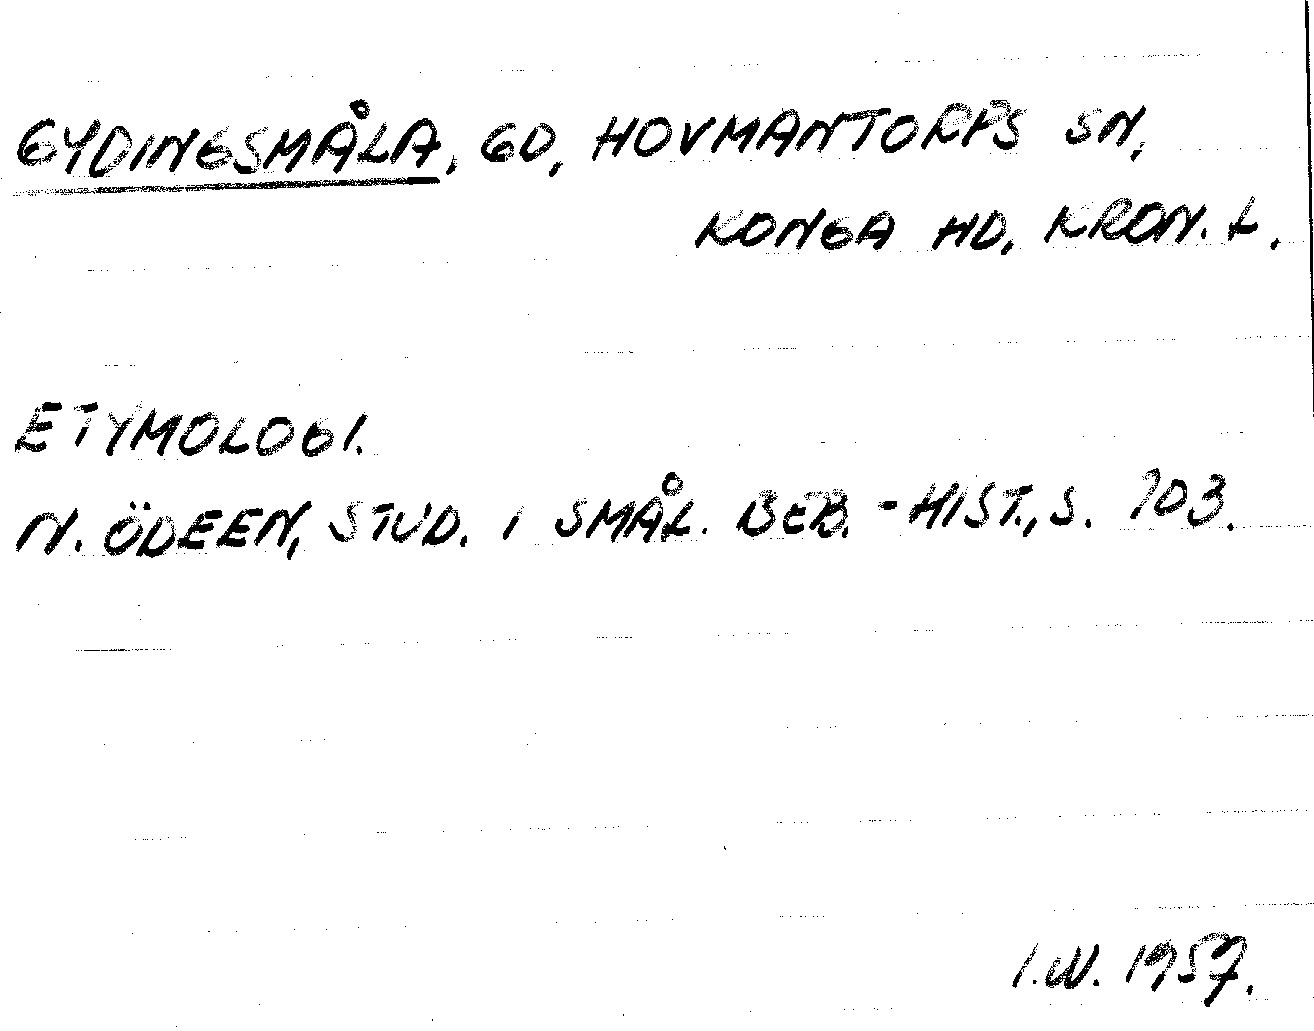 GYDINGSMÅLA, GD, HOVMANTORPS SN,
KONGA HD, KRON. L.
ETYMOLOGI.
N. ÖDEEN, STUD. I SMÅL. BEB.-HIST., S. 703.
I.W. 1957.